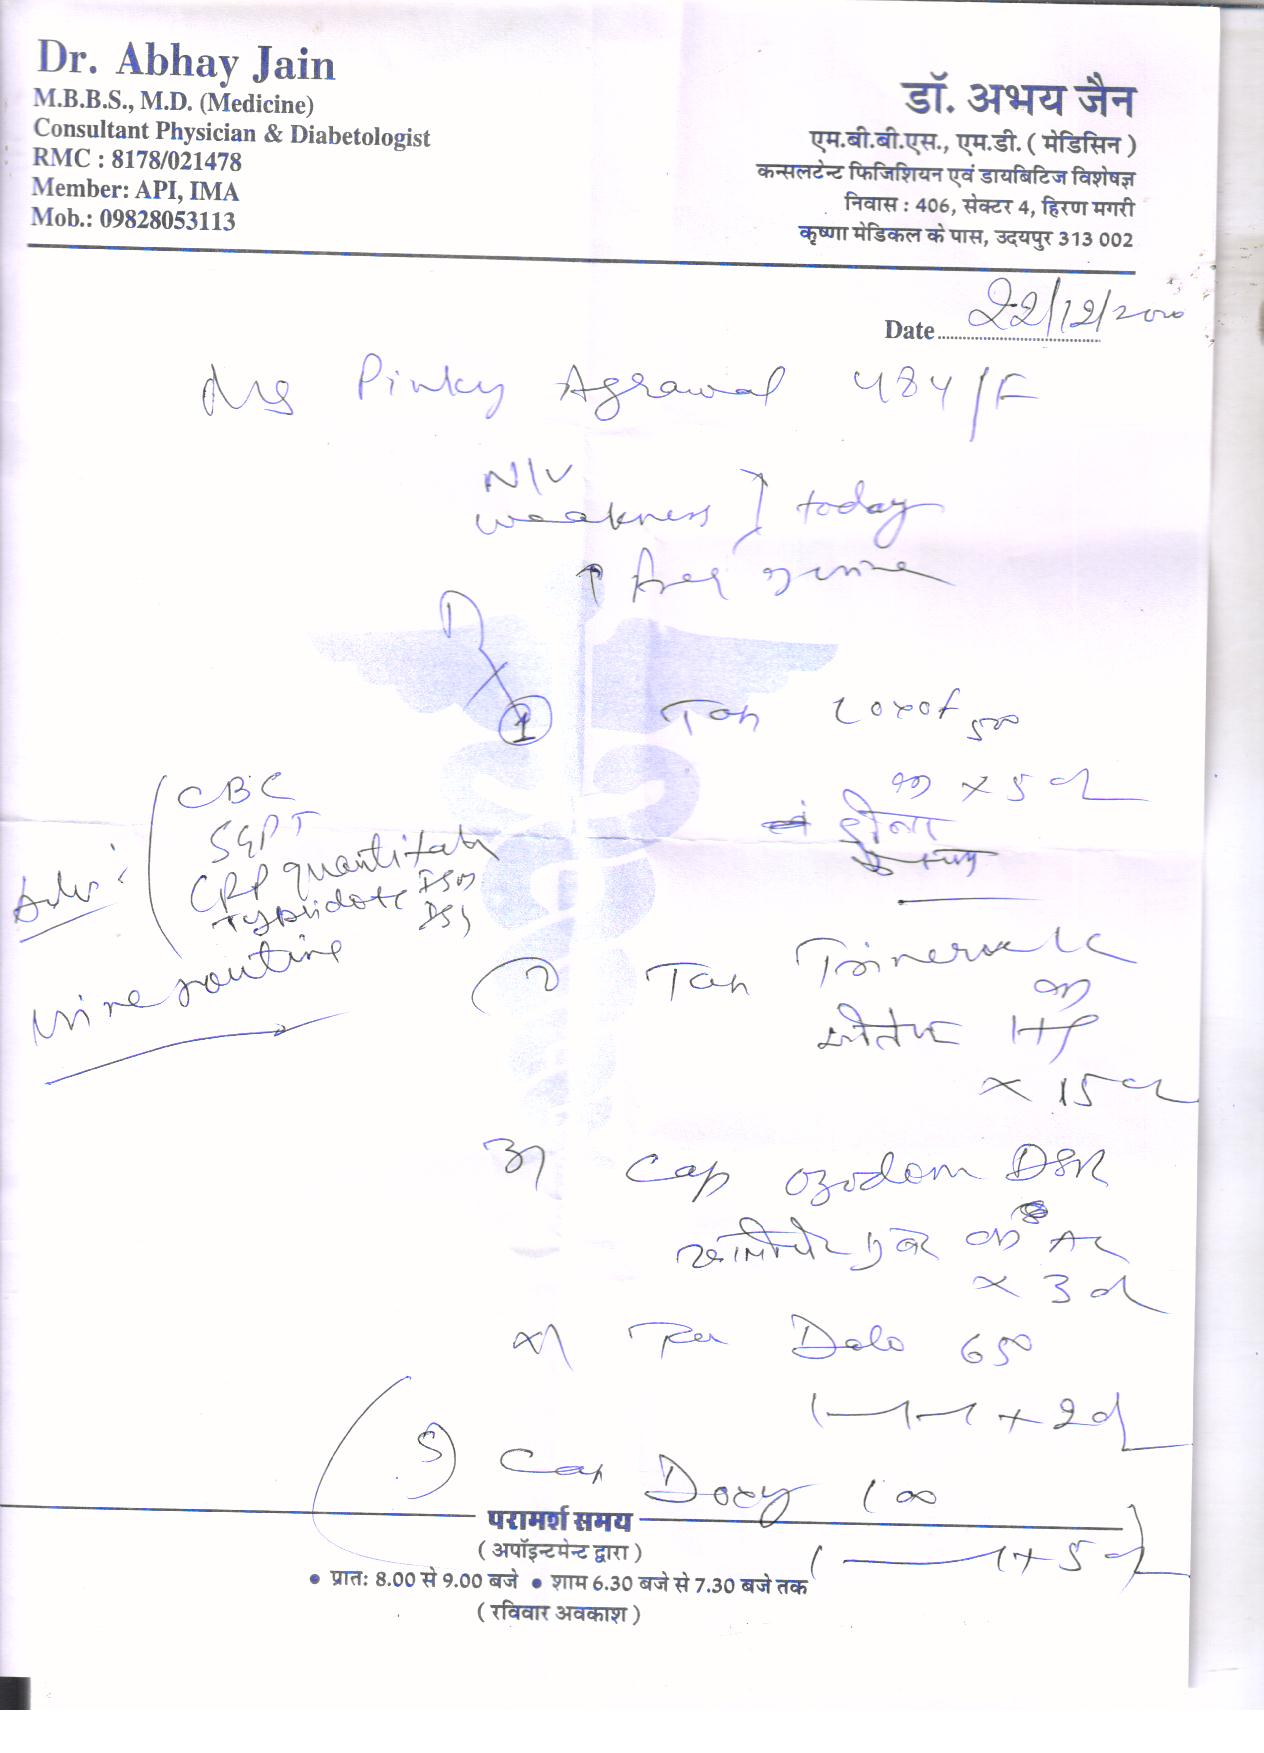 Dr. Abhay Jain
M.B.B.S., M.D. (Medicine)
Consultant Physician & Diabetologist
RMC : 8178/021478
Member: API, IMA
Mob.: 09828053113
डॉ. अभय जैन
एम.बी.बी.एस., एम.डी. ( मेडिसिन )
कन्सलटेन्ट फिजिशियन एवं डायबिटिज विशेषज्ञ
निवास : 406, सेक्टर 4, हिरण मगरी
कृष्णा मेडिकल के पास, उदयपुर 313 002
Date 22/12/20
Mrs Pinky Agrawal 48y/F
N/V
weakness } today
↑ freq urine
Rx
1 Tab Loxof 500
x 5 d
CBC
SGPT
CRP quantitati
Typhidot IgM
IgG
urine routine
2) Tab Trinerve LC
HS
x 15 d
3) Cap Ozodom DSR
AC
x 3 d
4) Dolo 650
1—1—1 x 2d
5) Cap Doxy 100
1——1 x 5 d
परामर्श समय
( अपॉइन्टमेन्ट द्वारा )
• प्रातः 8.00 से 9.00 बजे • शाम 6.30 बजे से 7.30 बजे तक
( रविवार अवकाश )